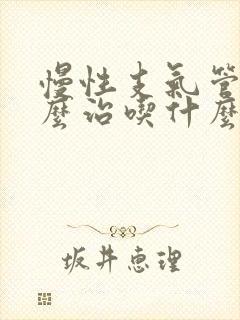 慢性支氣管
麼治喫什麼
坂井恵理